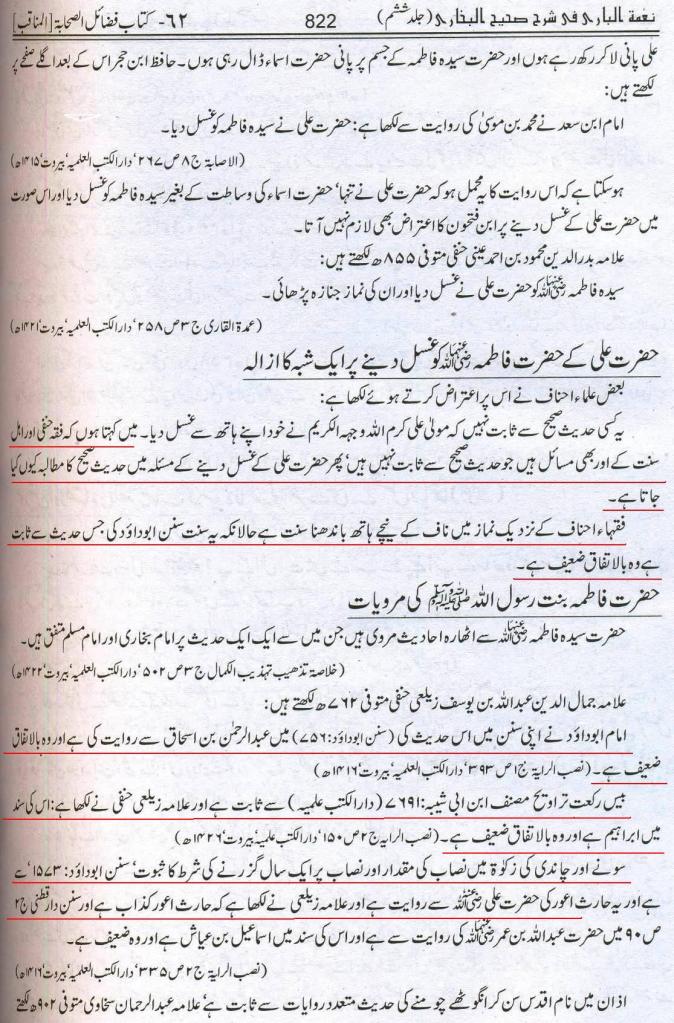 نعمۃ الباری فی شرح صحیح البخاری (جلد ششم) 822 ٦٢- کتاب فضائل الصحابۃ [المناقب]
علی پانی لا کر رکھ رہے ہوں اور حضرت سیدہ فاطمہ کے جسم پر پانی حضرت اسماء ڈال رہی ہوں۔ حافظ ابن حجر اس کے بعد اگلے صفحے پر
لکھتے ہیں:
امام ابن سعد نے محمد بن موسیٰ کی روایت سے لکھا ہے: حضرت علی نے سیدہ فاطمہ کو غسل دیا۔
(الاصابۃ ج ۸ ص ۲٦۷، دار الکتب العلمیہ، بیروت، ۱۴۱۵ھ)
ہو سکتا ہے کہ اس روایت کا یہ محمل ہو کہ حضرت علی نے تنہا، حضرت اسماء کی وساطت کے بغیر سیدہ فاطمہ کو غسل دیا اور اس صورت
میں حضرت علی کے غسل دینے پر ابن فتحون کا اعتراض بھی لازم نہیں آتا۔
علامہ بدر الدین محمود بن احمد عینی حنفی متوفی ۸۵۵ھ لکھتے ہیں:
سیدہ فاطمہ رضی اللہ عنہا کو حضرت علی نے غسل دیا اور ان کی نماز جنازہ پڑھائی۔
(عمدۃ القاری ج ۳ ص ۲۵۸، دار الکتب العلمیہ، بیروت، ۱۴۲۱ھ)
حضرت علی کے حضرت فاطمہ رضی اللہ عنہا کو غسل دینے پر ایک شبہ کا ازالہ
بعض علماء احناف نے اس پر اعتراض کرتے ہوئے لکھا ہے:
یہ کسی حدیث صحیح سے ثابت نہیں کہ مولیٰ علی کرم اللہ وجہہ الکریم نے خود اپنے ہاتھ سے غسل دیا۔ میں کہتا ہوں کہ فقہ حنفی اور اہل
سنت کے اور بھی مسائل ہیں جو حدیث صحیح سے ثابت نہیں ہیں، پھر حضرت علی کے غسل دینے کے مسئلہ میں حدیث صحیح کا مطالبہ کیوں کیا
جاتا ہے۔
فقہاء احناف کے نزدیک نماز میں ناف کے نیچے ہاتھ باندھنا سنت ہے حالانکہ یہ سنت سنن ابوداؤد کی جس حدیث سے ثابت
ہے وہ بالاتفاق ضعیف ہے۔
حضرت فاطمہ بنت رسول اللہ صلی اللہ علیہ وسلم کی مرویات
حضرت سیدہ فاطمہ رضی اللہ عنہا سے اٹھارہ احادیث مروی ہیں جن میں سے ایک ایک حدیث پر امام بخاری اور امام مسلم متفق ہیں۔
(خلاصۃ تذھیب تہذیب الکمال ج ۳ ص ۵۰۲، دار الکتب العلمیہ، بیروت، ۱۴۲۲ھ)
علامہ جمال الدین عبد اللہ بن یوسف زیلعی حنفی متوفی ۷٦۲ھ لکھتے ہیں:
امام ابوداؤد نے اپنی سنن میں اس حدیث کی (سنن ابوداؤد: ۷۵٦) میں عبد الرحمٰن بن اسحاق سے روایت کی ہے اور وہ بالاتفاق
ضعیف ہے۔ (نصب الرایۃ ج ۱ ص ۳۹۳، دار الکتب العلمیہ، بیروت، ۱۴۱٦ھ)
بیس رکعت تراویح مصنف ابن ابی شیبہ: ۷٦۹۱ (دار الکتب علمیہ) سے ثابت ہے اور علامہ زیلعی حنفی نے لکھا ہے: اس کی سند
میں ابراہیم ہے اور وہ بالاتفاق ضعیف ہے۔ (نصب الرایہ ج ۲ ص ۱۵۰، دار الکتب علمیہ، بیروت، ۱۴۲٦ھ)
سونے اور چاندی کی زکوٰۃ میں نصاب کی مقدار اور نصاب پر ایک سال گزرنے کی شرط کا ثبوت، سنن ابوداؤد: ۱۵۷۳، سے
ہے اور یہ حارث اعور کی حضرت علی رضی اللہ عنہ سے روایت ہے اور علامہ زیلعی نے لکھا ہے کہ حارث اعور کذاب ہے اور سنن دار قطنی ج ۲
ص ۹۰ میں حضرت عبد اللہ بن عمر رضی اللہ عنہما کی روایت سے ہے اور اس کی سند میں اسماعیل بن عیاش ہے اور وہ ضعیف ہے۔
(نصب الرایۃ ج ۲ ص ۳۳۵، دار الکتب العلمیہ، بیروت، ۱۴۱٦ھ)
اذان میں نام اقدس سن کر انگوٹھے چومنے کی حدیث متعدد روایات سے ثابت ہے، علامہ عبد الرحمان سخاوی متوفی ۹۰۲ھ لکھتے